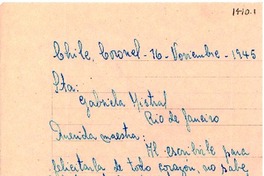 1490.1
Chile, Coronel - 16 - Noviembre - 1945
Sta:
Gabriela Mistral
Rio de Janeiro
Querida maestra:
Al escribirle para
felicitarla de todo corazón, no sabe